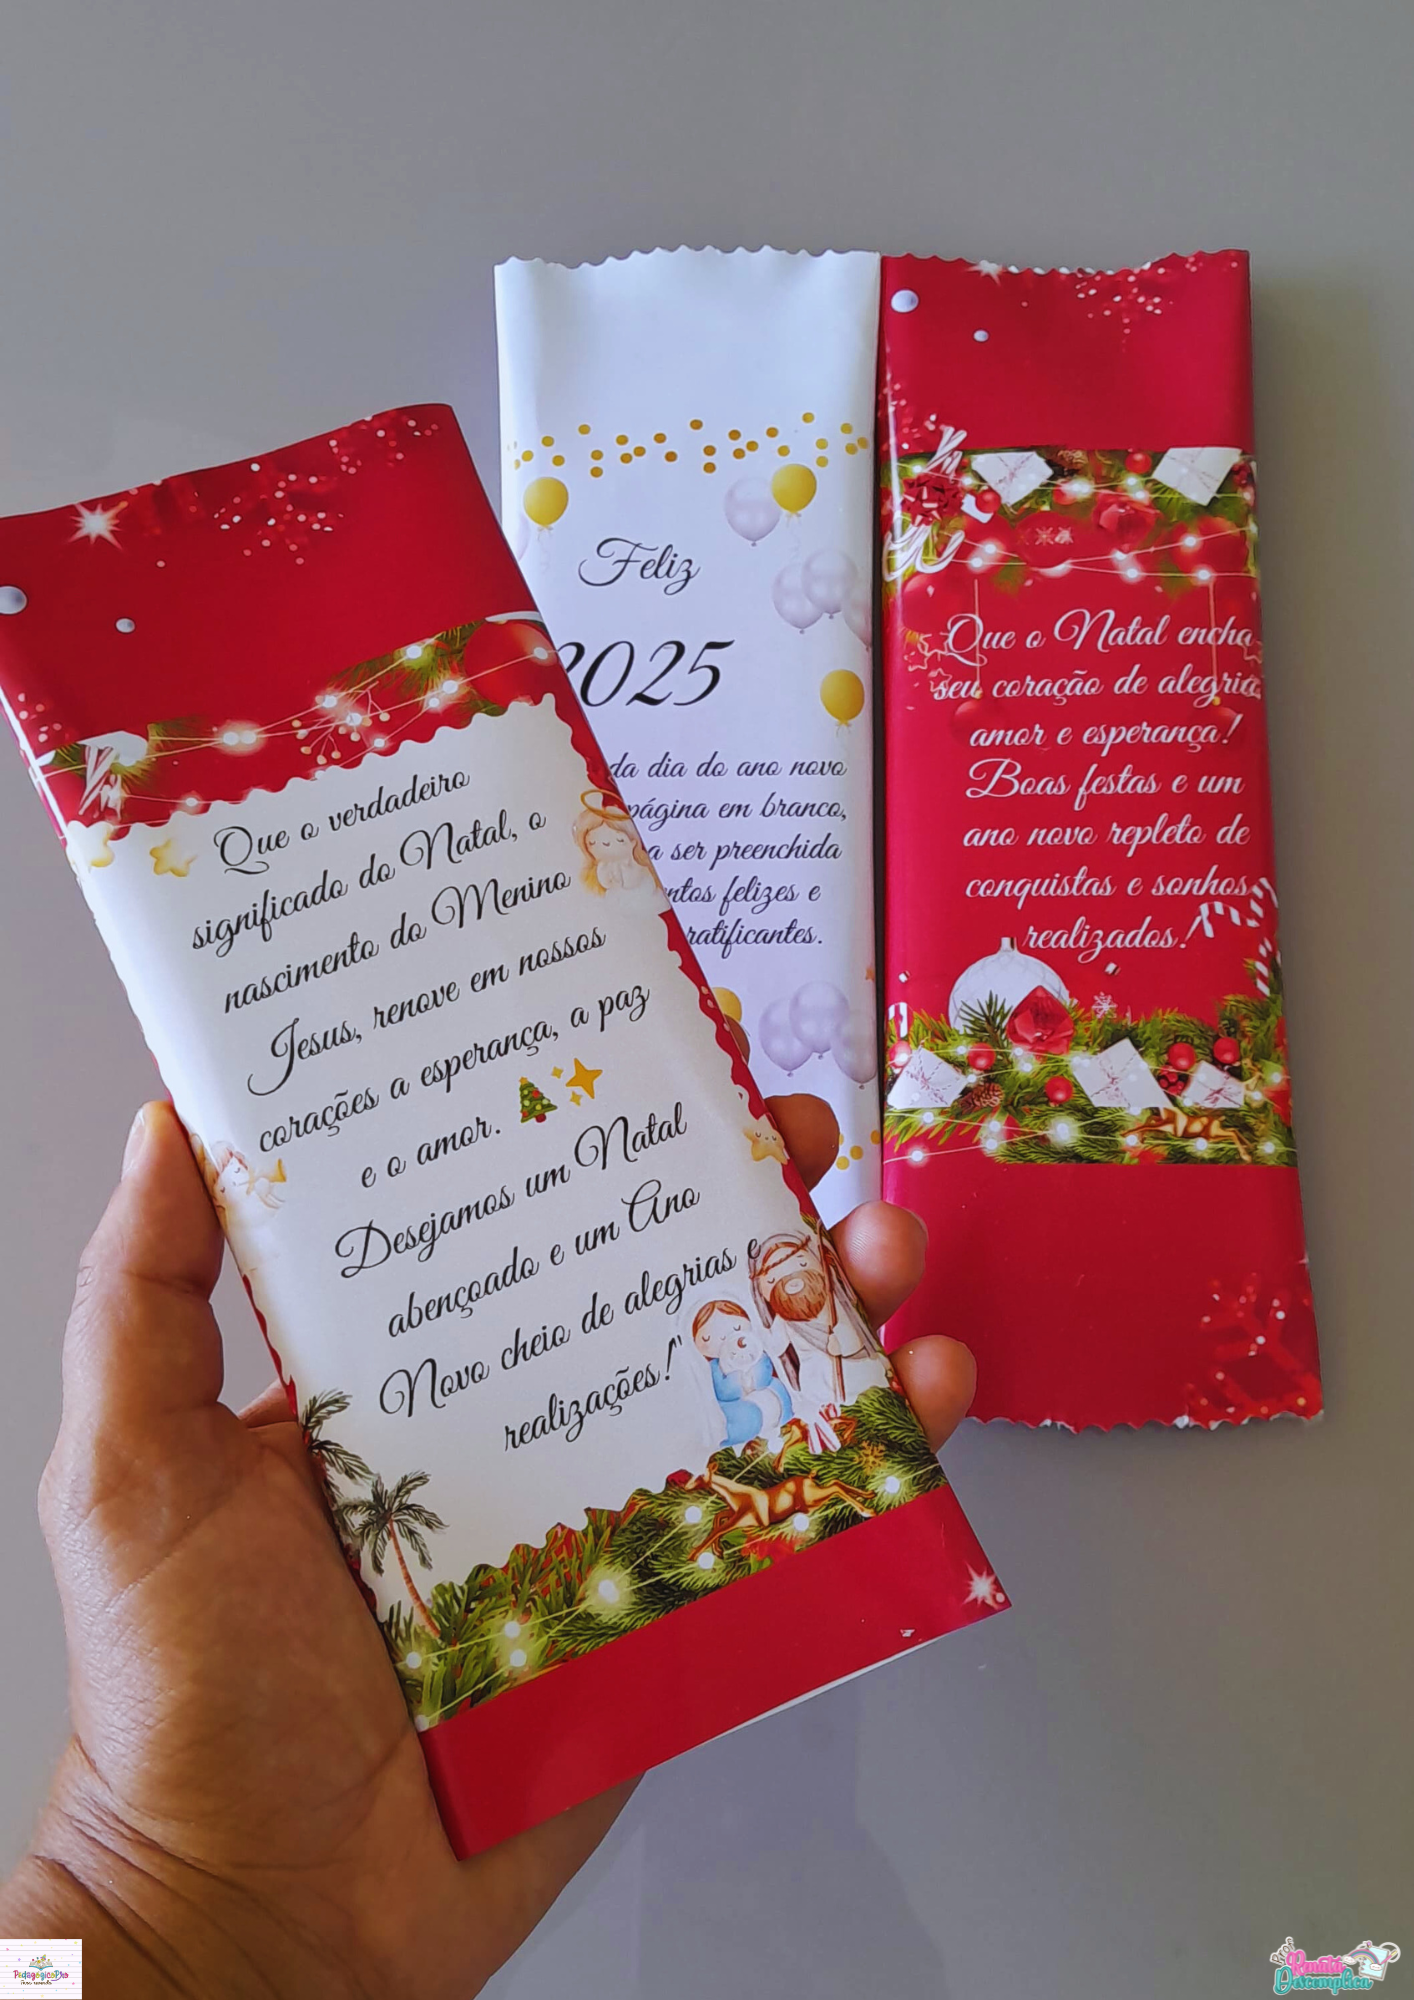 Que o verdadeiro
significado do Natal, o
nascimento do Menino
Jesus, renove em nossos
corações a esperança, a paz
e o amor.
Desejamos um Natal
abençoado e um Ano
Novo cheio de alegrias e
realizações!"
Feliz
2025
dia do ano novo
página em branco,
a ser preenchida
felizes e
Que o Natal encha
seu coração de alegria,
amor e esperança!
Boas festas e um
ano novo repleto de
conquistas e sonhos
realizados!
PedagógicoPlus
Prof.
Renata
Descomplica